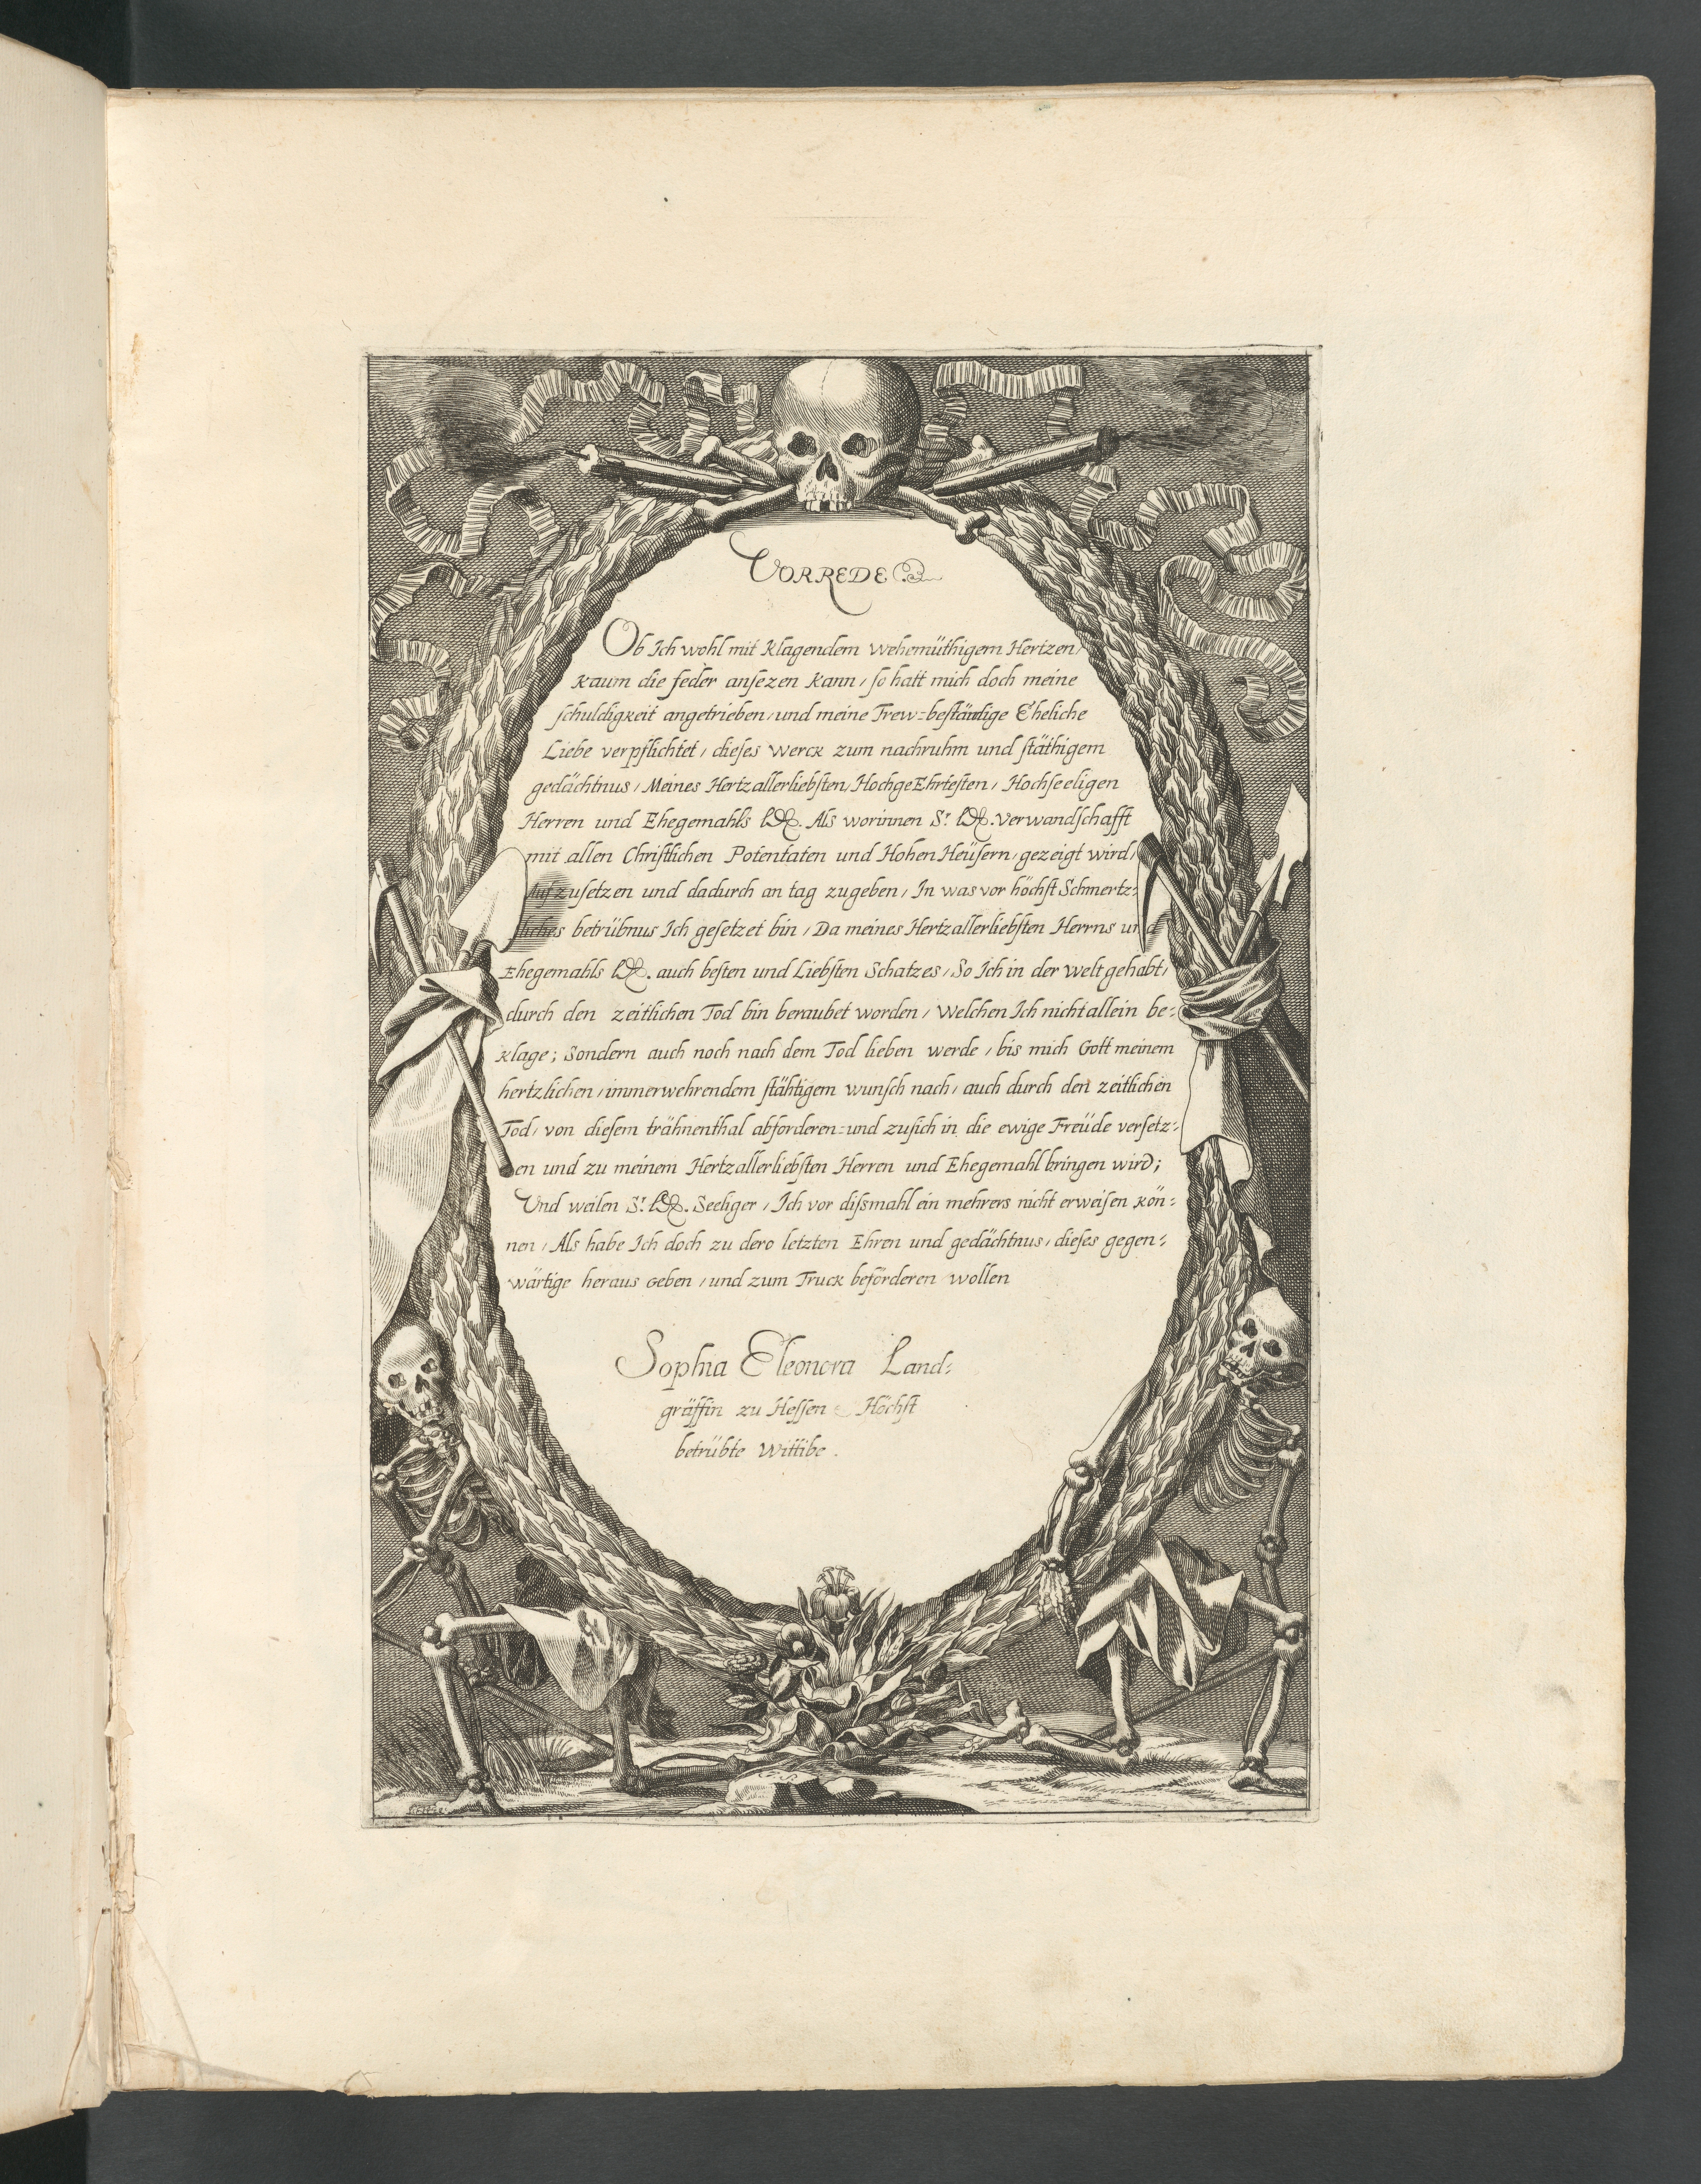 VORREDE
Ob Ich wohl mit Klagendem wehemüthigem Hertzen/
kaum die feder ansezen kann/ so hatt mich doch meine
schuldigkeit angetrieben/ und meine Trew=beständige Eheliche
Liebe verpflichtet/ dieses werck zum nachruhm und stäthigem
gedächtnus/ Meines Hertzallerliebsten/ HochgeEhrtesten/ Hochseeligen
Herren und Ehegemahls Als worinnen Sr. verwandschafft
mit allen Christlichen Potentaten und Hohen Heüsern/ gezeigt wird/
Aufzusetzen und dadurch an tag zugeben/ In was vor höchst Schmertz=
liches betrübnus Ich gesetzet bin/ Da meines Hertzallerliebsten Herrns und
Ehegemahls auch besten und Liebsten Schatzes/ So Ich in der welt gehabt/
durch den zeitlichen Tod bin beraubet worden/ Welchen Ich nicht allein be=
klage; Sondern auch noch nach dem Tod lieben werde/ bis mich Gott meinem
hertzlichen/ immerwehrendem stähtigem wunsch nach/ auch durch den zeitlichen
Tod/ von diesem trähnenthal abforderen=und zusich in die ewige Freüde versetz=
en und zu meinem Hertzallerliebsten Herren und Ehegemahl bringen wird;
Und weilen Sr. Seeliger/ Ich vor dissmahl ein mehrers nicht erweisen kön=
nen/ Als habe Ich doch zu dero letzten Ehren und gedächtnus/ dieses gegen=
wärtige heraus geben/ und zum Truck beförderen wollen
Sophia Eleonora Land=
gräffin zu Hessen Höchst
betrübte Wittibe.